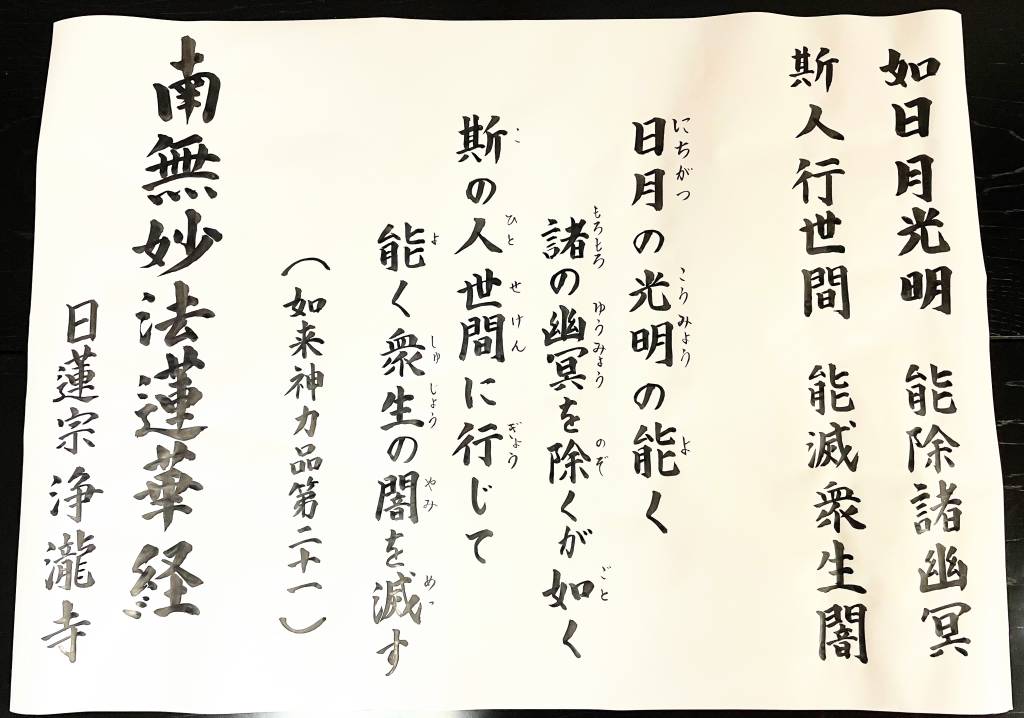 如日月光明　能除諸幽冥
斯人行世間　能滅衆生闇
日月の光明の能く
にちがつ　こうみょう　よ
諸の幽冥を除くが如く
もろもろ　ゆうみょう　のぞ　ごと
斯の人世間に行じて
こ　ひと　せけん　ぎょう
能く衆生の闇を滅す
よ　しゅじょう　やみ　めっ
（如来神力品第二十一）
南無妙法蓮華経
日蓮宗　浄瀧寺